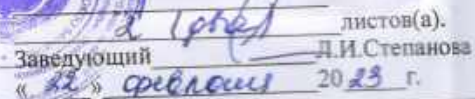 2 (два) листов(а).
Заведующий Л.И.Степанова
« 22 » февраля 20 23 г.